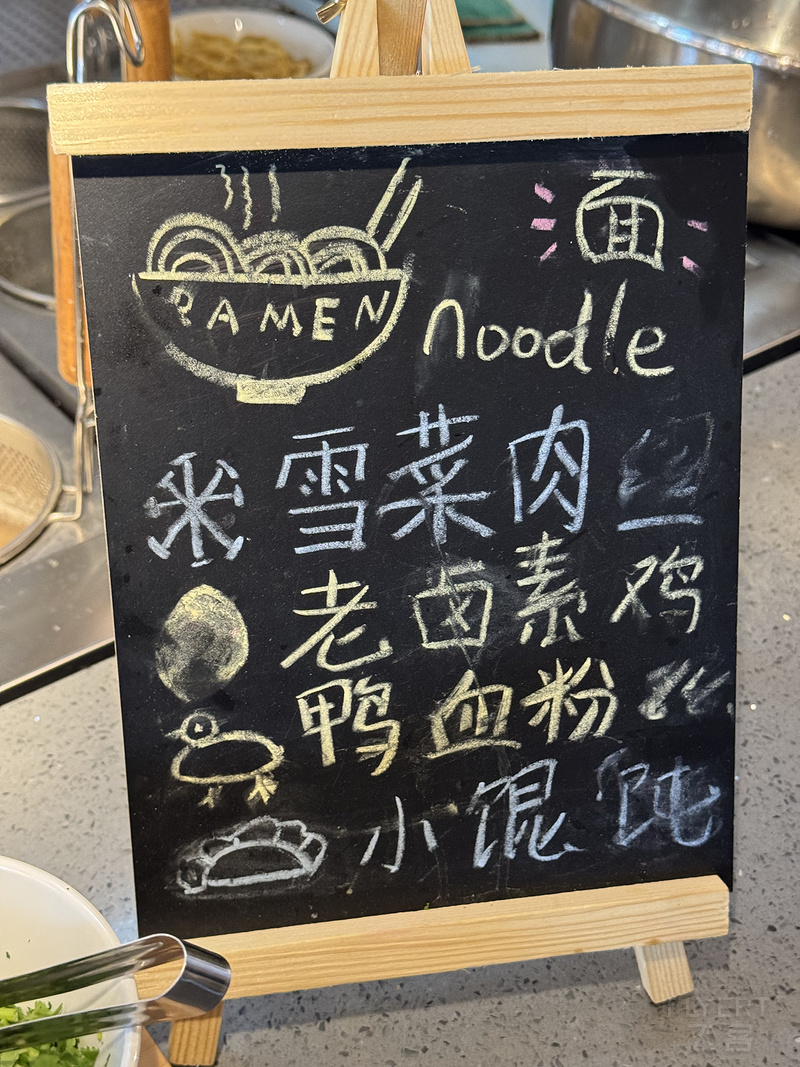 面
RAMEN
noodle
雪菜肉丝
老卤素鸡
鸭血粉丝
小馄饨